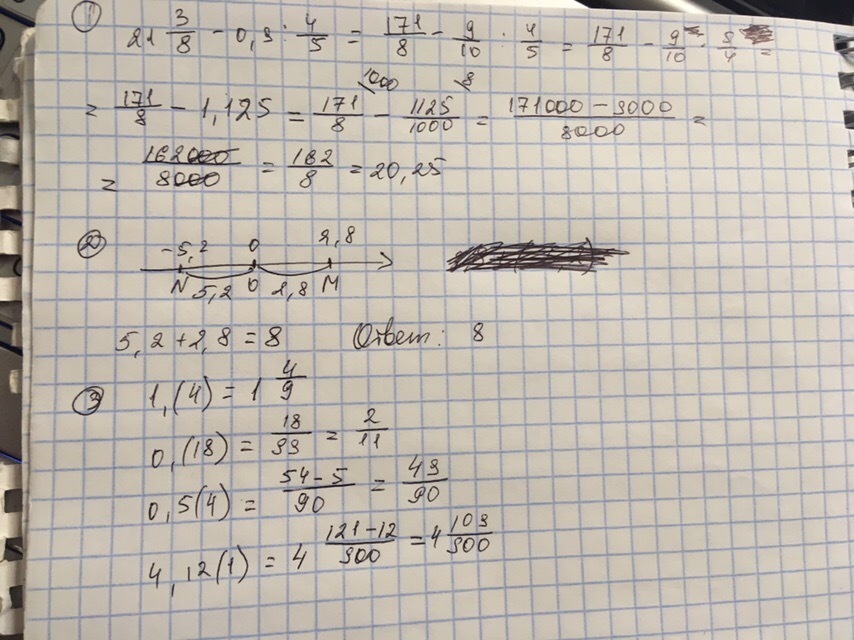 1) 21 3/8 - 0,9 : 4/5 = 171/8 - 9/10 : 4/5 = 171/8 - 9/10 · 5/4 =
= 171/8 - 1,125 = 171/8 - 1125/1000 = (171000 - 9000)/8000 =
= 162000/8000 = 162/8 = 20,25
2) -5,2 0 2,8
N 5,2 0 2,8 M
5,2 + 2,8 = 8 Ответ: 8
3) 1,(4) = 1 4/9
0,(18) = 18/99 = 2/11
0,5(4) = (54-5)/90 = 49/90
4,12(1) = 4 (121-12)/900 = 4 109/900